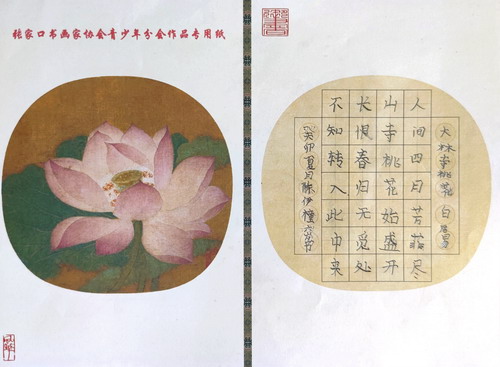 张家口书画家协会青少年分会作品专用纸
大林寺桃花 白居易
人间四月芳菲尽
山寺桃花始盛开
长恨春归无觅处
不知转入此中来
癸卯夏月陈伊橦